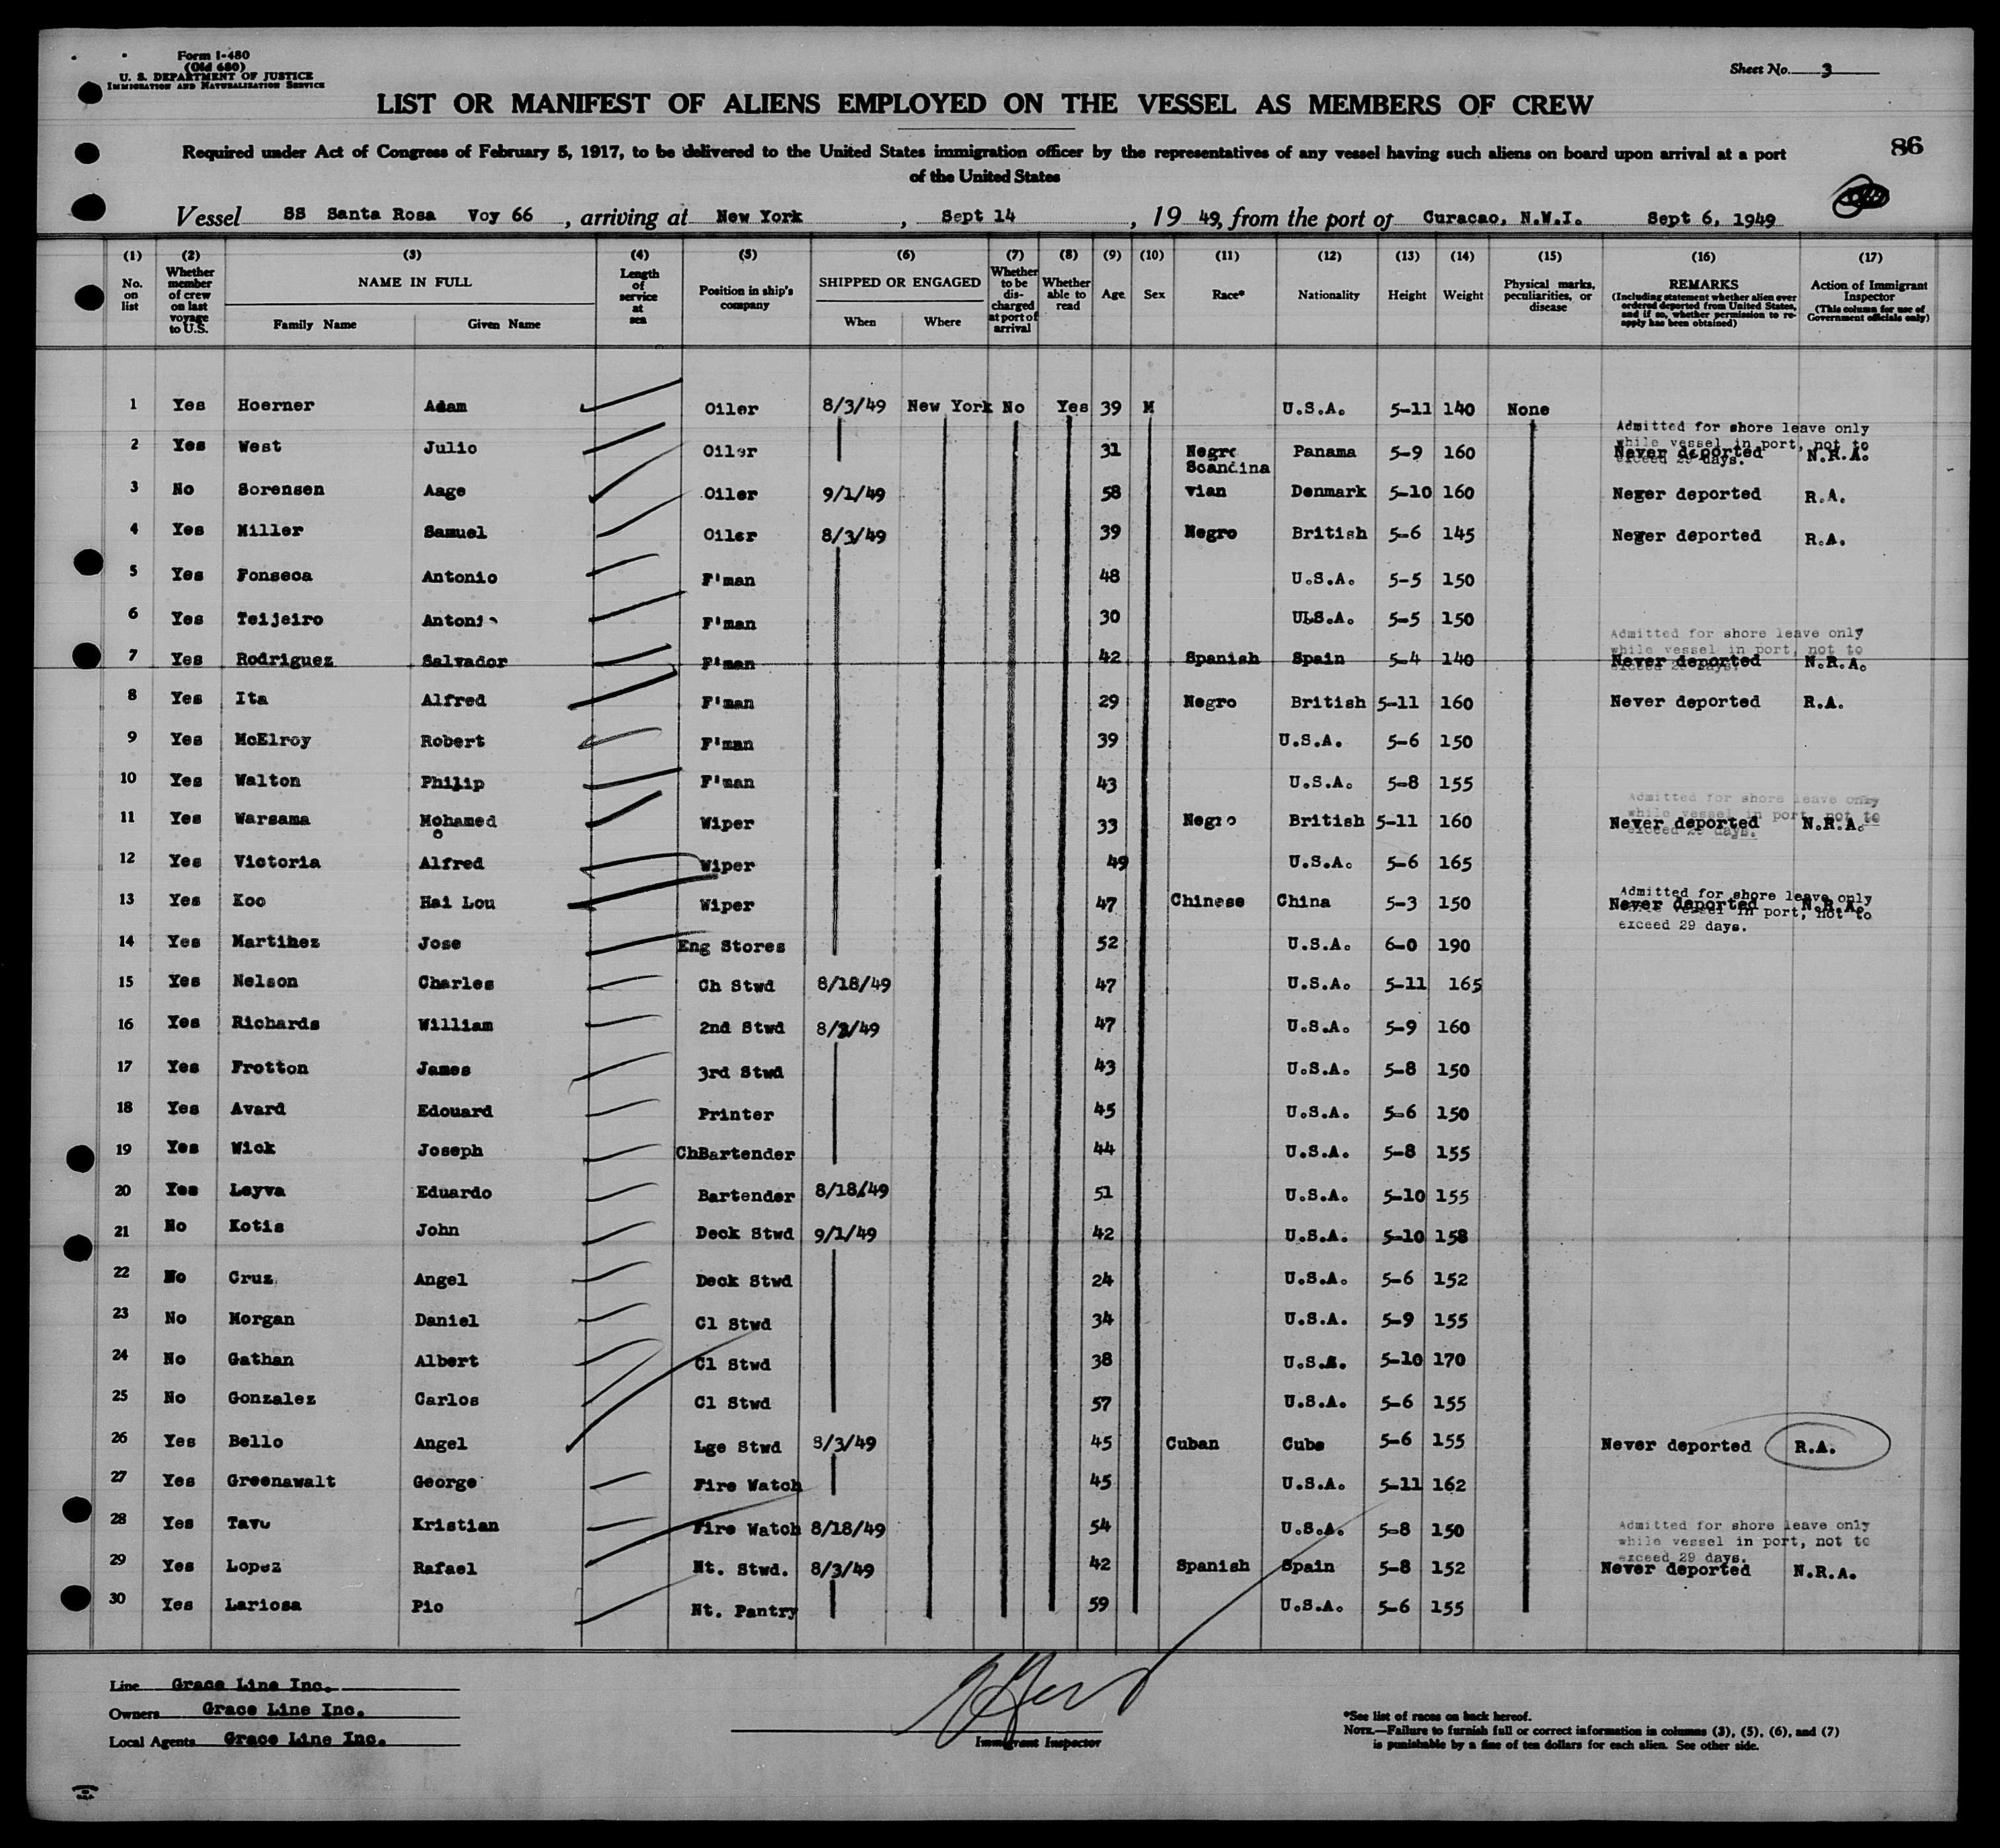 Form I-480
(Old 680)
U. S. DEPARTMENT OF JUSTICE
IMMIGRATION AND NATURALIZATION SERVICE
Sheet No. 3
LIST OR MANIFEST OF ALIENS EMPLOYED ON THE VESSEL AS MEMBERS OF CREW
86
Required under Act of Congress of February 5, 1917, to be delivered to the United States immigration officer by the representatives of any vessel having such aliens on board upon arrival at a port
of the United States
Vessel SS Santa Rosa Voy 66, arriving at New York, Sept 14, 1949, from the port of Curacao, N.W.I. Sept 6, 1949
(1) No. on list
(2) Whether member of crew on last voyage to U.S.
(3) NAME IN FULL Family Name Given Name
(4) Length of service at sea
(5) Position in ship's company
(6) SHIPPED OR ENGAGED When Where
(7) Whether to be discharged at port of arrival
(8) Whether able to read
(9) Age
(10) Sex
(11) Race*
(12) Nationality
(13) Height
(14) Weight
(15) Physical marks, peculiarities, or disease
(16) REMARKS (Including statement whether alien ever ordered deported from United States, and if so, whether permission to re-apply has been obtained)
(17) Action of Immigrant Inspector (This column for use of Government officials only)
1 Yes Hoerner Adam Oiler 8/3/49 New York No Yes 39 M U.S.A. 5-11 140 None
Admitted for shore leave only
while vessel in port, not to
exceed 29 days.
2 Yes West Julio Oiler 31 Negro Panama 5-9 160 Never deported N.R.A.
3 No Sorensen Aage Oiler 9/1/49 58 Scandinavian Denmark 5-10 160 Never deported R.A.
4 Yes Miller Samuel Oiler 8/3/49 39 Negro British 5-6 145 Never deported R.A.
5 Yes Fonseca Antonio F'man 48 U.S.A. 5-5 150
6 Yes Teijeiro Antonio F'man 30 U.S.A. 5-5 150
Admitted for shore leave only
while vessel in port, not to
exceed 29 days.
7 Yes Rodriguez Salvador F'man 42 Spanish Spain 5-4 140 Never deported N.R.A.
8 Yes Ita Alfred F'man 29 Negro British 5-11 160 Never deported R.A.
9 Yes McElroy Robert F'man 39 U.S.A. 5-6 150
10 Yes Walton Philip F'man 43 U.S.A. 5-8 155
Admitted for shore leave only
while vessel in port, not to
exceed 29 days.
11 Yes Warsama Mohamed Wiper 33 Negro British 5-11 160 Never deported N.R.A.
12 Yes Victoria Alfred Wiper 49 U.S.A. 5-6 165
Admitted for shore leave only
while vessel in port, not to
exceed 29 days.
13 Yes Koo Hai Lou Wiper 47 Chinese China 5-3 150 Never deported N.R.A.
14 Yes Martinez Jose Eng Stores 52 U.S.A. 6-0 190
15 Yes Nelson Charles Ch Stwd 8/18/49 47 U.S.A. 5-11 165
16 Yes Richards William 2nd Stwd 8/3/49 47 U.S.A. 5-9 160
17 Yes Frotton James 3rd Stwd 43 U.S.A. 5-8 150
18 Yes Avard Edouard Printer 45 U.S.A. 5-6 150
19 Yes Wick Joseph ChBartender 44 U.S.A. 5-8 155
20 Yes Leyva Eduardo Bartender 8/18/49 51 U.S.A. 5-10 155
21 No Kotis John Deck Stwd 9/1/49 42 U.S.A. 5-10 158
22 No Cruz Angel Deck Stwd 24 U.S.A. 5-6 152
23 No Morgan Daniel Cl Stwd 34 U.S.A. 5-9 155
24 No Gathan Albert Cl Stwd 38 U.S.A. 5-10 170
25 No Gonzalez Carlos Cl Stwd 57 U.S.A. 5-6 155
26 Yes Bello Angel Lge Stwd 8/3/49 45 Cuban Cuba 5-6 155 Never deported R.A.
27 Yes Greenawalt George Fire Watch 45 U.S.A. 5-11 162
28 Yes Kristian Fire Watch 8/18/49 54 U.S.A. 5-8 150
Admitted for shore leave only
while vessel in port, not to
exceed 29 days.
29 Yes Lopez Rafael Nt. Stwd. 8/3/49 42 Spanish Spain 5-8 152 Never deported N.R.A.
30 Yes Lariosa Pio Nt. Pantry 59 U.S.A. 5-6 155
Line Grace Line Inc.
Owners Grace Line Inc.
Local Agents Grace Line Inc.
Immigrant Inspector
*See list of races on back hereof.
NOTE.—Failure to furnish full or correct information in columns (3), (5), (6), and (7)
is punishable by a fine of ten dollars for each alien. See other side.